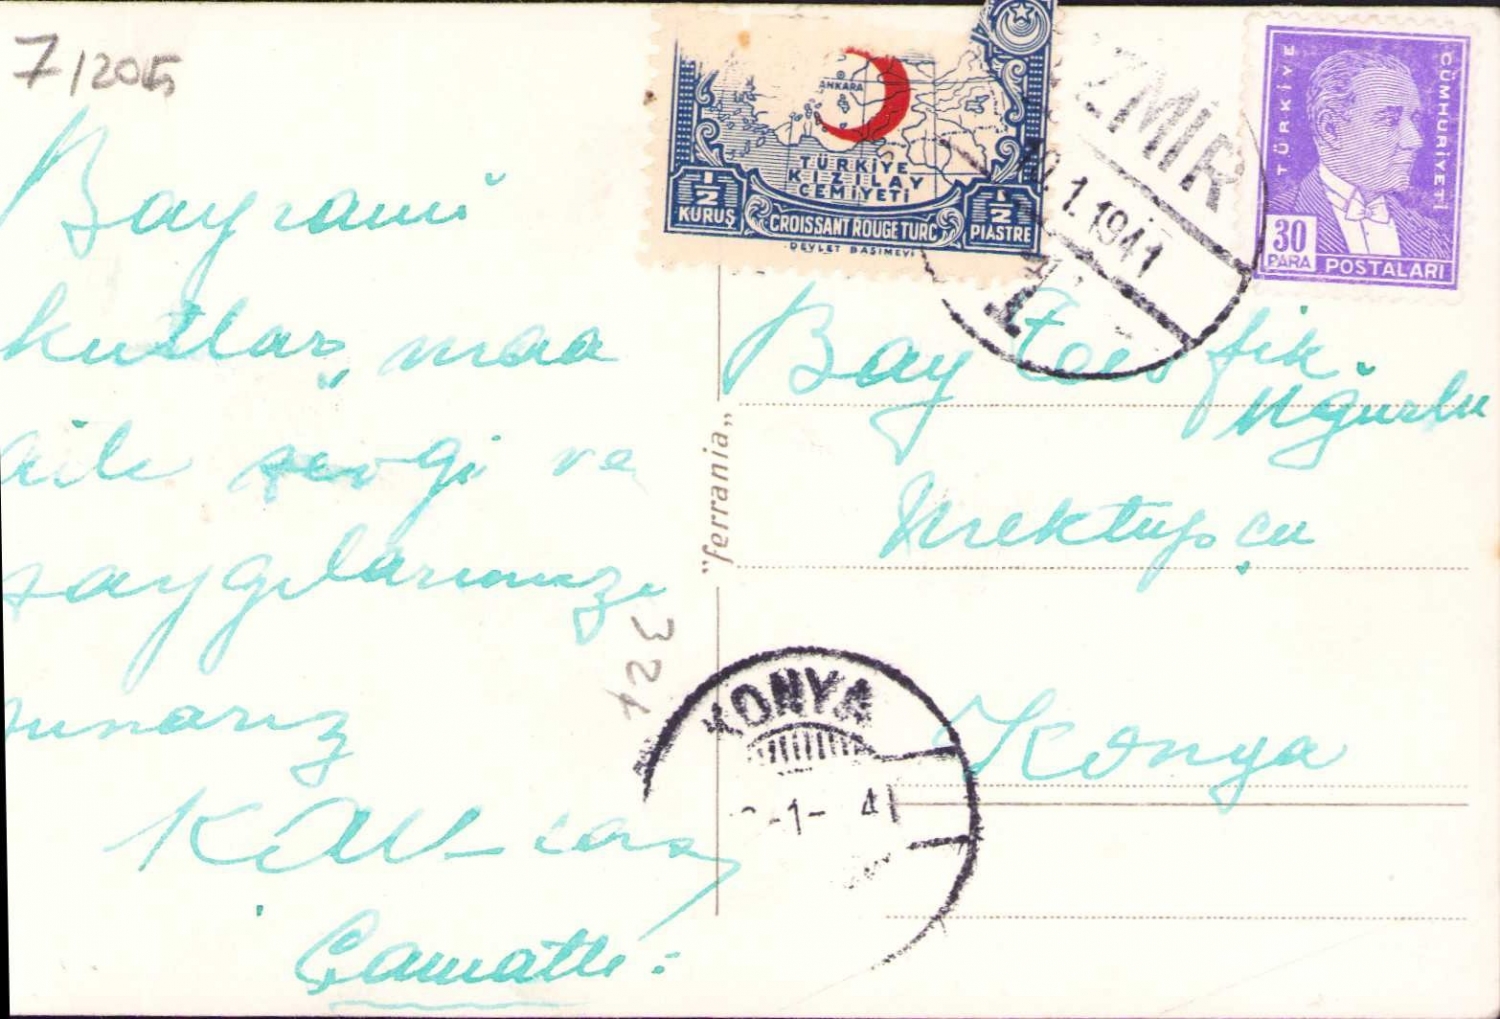 7/205
Bayramı
kutlar, maa
aile sevgi ve
saygılarımızı
sunarız
Çamaltı
324
ANKARA
TÜRKİYE
KIZILAY
CEMİYETİ
1/2
KURUŞ
CROISSANT ROUGE TURC
1/2
PIASTRE
DEVLET BASIMEVİ
ZMİR
1.1941
1
TÜRKİYE
CÜMHURİYETİ
30
PARA
POSTALARI
"ferrania"
Bay Tevfik
Uğurlu
Mektupçu
Konya
KONYA
-1- 41